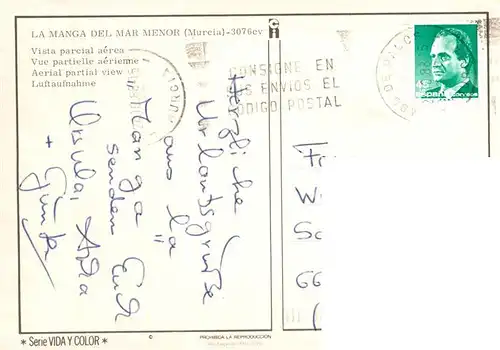 LA MANGA DEL MAR MENOR (Murcia)-3076cv
Vista parcial aérea
Vue partielle aérienne
Aerial partial view
Luftaufnahme
CONSIGNE EN
ENVIOS EL
CODIGO POSTAL
45
ESPAÑA
Herzliche
Urlaubsgrüße
aus La
Manga
senden Euch
Ursula,
+ Günter
W
66
* Serie VIDA Y COLOR *
©
PROHIBIDA LA REPRODUCCION